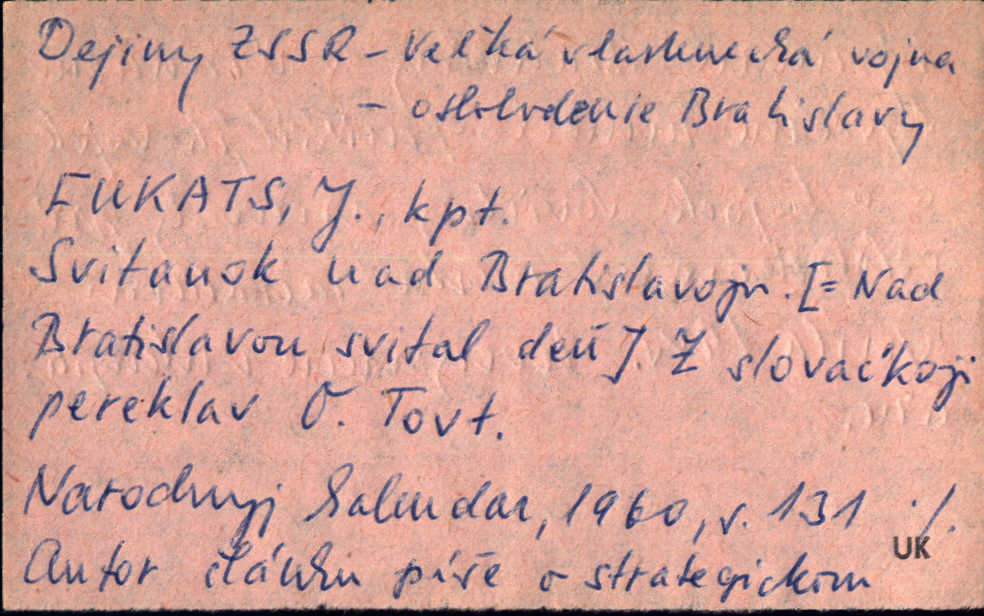 Dejiny ZSSR – Veľká vlastenecká vojna
– oslobodenie Bratislavy
EUKATS, J., kpt.
Svitanok nad Bratislavoju. [= Nad
Bratislavou svital deň]. Z slovačkoji
pereklav O. Tovt.
Narodnyj kalendar, 1960, s. 131 ./.
UK
Autor článku píše o strategickom